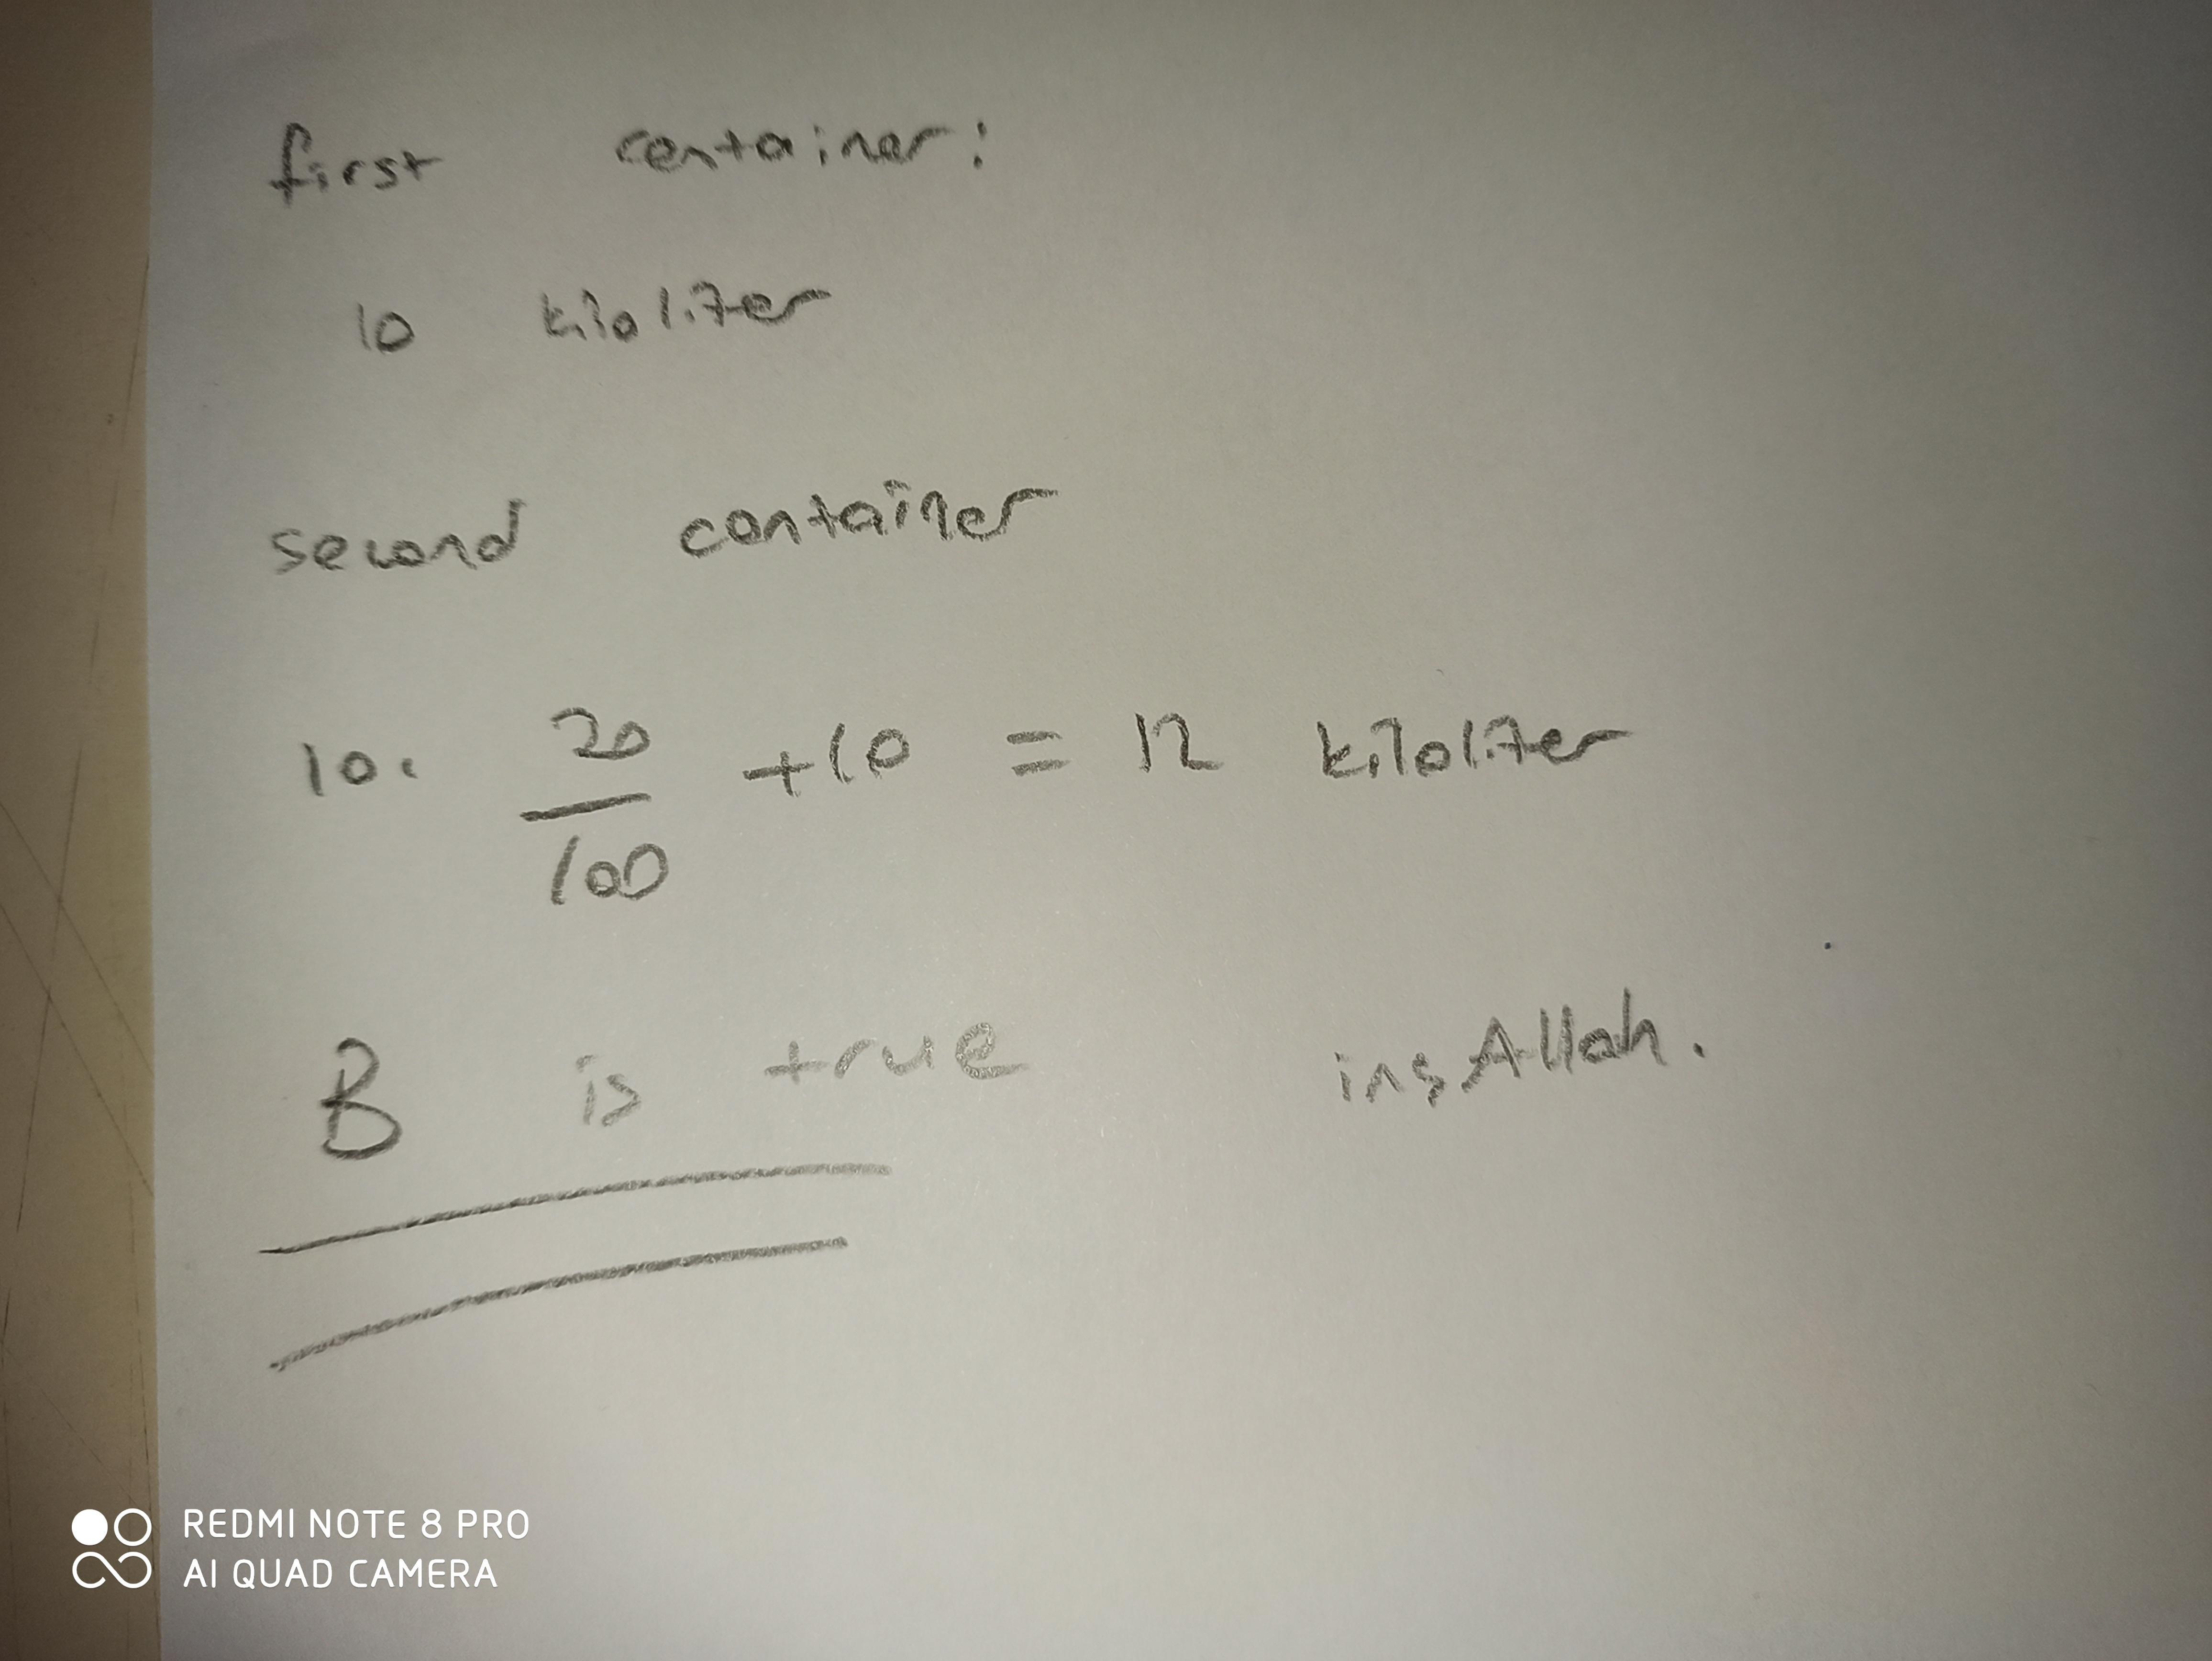 first container:
10 kiloliter
second container
10. 20/100 +10 = 12 kiloliter
B is true inşAllah.
REDMI NOTE 8 PRO
AI QUAD CAMERA